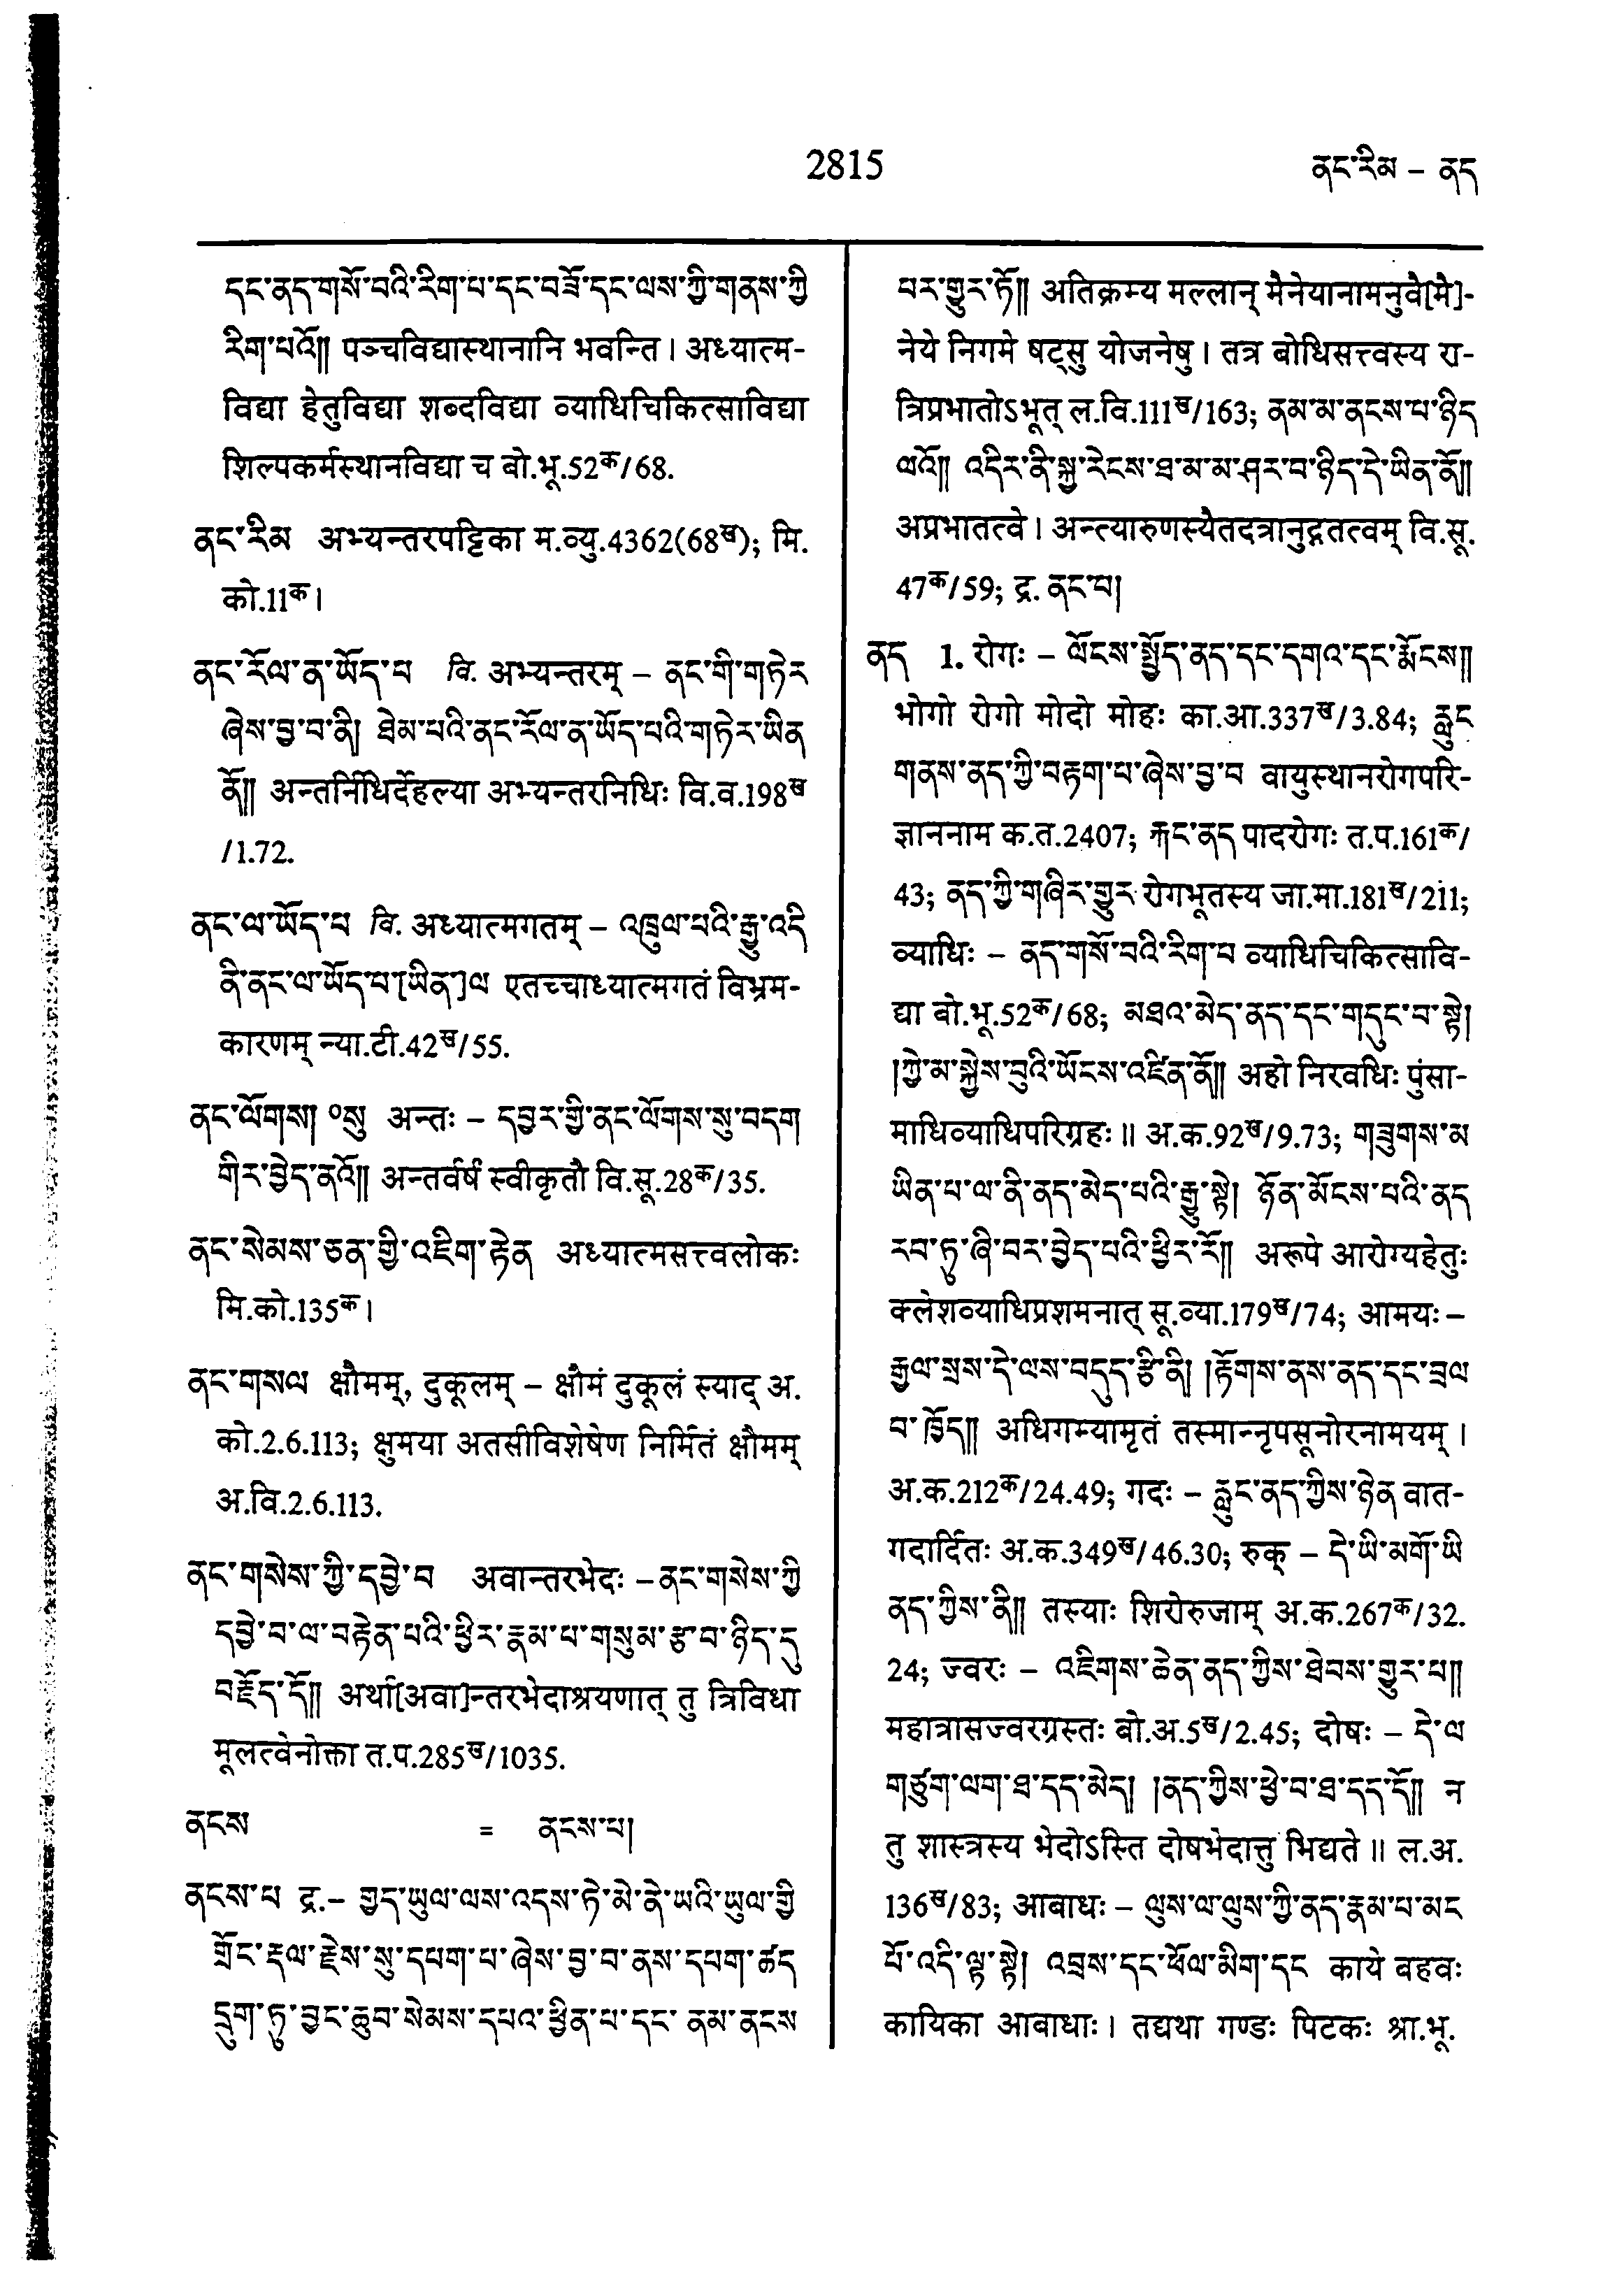 2815
ནང་རིམ – ནད
དང་ནད་གསོ་བའི་རིག་པ་དང་བཟོ་དང་ལས་ཀྱི་གནས་ཀྱི
རིག་པའོ།། पञ्चविद्यास्थानानि भवन्ति। अध्यात्म-
विद्या हेतुविद्या शब्दविद्या व्याधिचिकित्साविद्या
शिल्पकर्मस्थानविद्या च बो.भू.52क/68.
ནང་རིམ अभ्यन्तरपट्टिका म.व्यु.4362(68ख); मि.
को.11क।
ནང་རོལ་ན་ཡོད་པ वि. अभ्यन्तरम् – ནང་གི་གཏེར
ཞེས་བྱ་བ་ནི། ཐེམ་པའི་ནང་རོལ་ན་ཡོད་པའི་གཏེར་ཡིན
ནོ།། अन्तर्निधिर्देहल्या अभ्यन्तरनिधिः वि.व.198ख
/1.72.
ནང་ལ་ཡོད་པ वि. अध्यात्मगतम् – འཁྲུལ་པའི་རྒྱུ་འདི
ནི་ནང་ལ་ཡོད་པ་[ཡིན་]ལ एतच्चाध्यात्मगतं विभ्रम-
कारणम् न्या.टी.42ख/55.
ནང་ལོགས། ༠སུ अन्तः – དབྱར་གྱི་ནང་ལོགས་སུ་བདག
གིར་བྱེད་ནའོ།། अन्तर्वर्षं स्वीकृतौ वि.सू.28क/35.
ནང་སེམས་ཅན་གྱི་འཇིག་རྟེན अध्यात्मसत्त्वलोकः
मि.को.135क।
ནང་གསལ क्षौमम्, दुकूलम् – क्षौमं दुकूलं स्याद् अ.
को.2.6.113; क्षुमया अतसीविशेषेण निर्मितं क्षौमम्
अ.वि.2.6.113.
ནང་གསེས་ཀྱི་དབྱེ་བ अवान्तरभेदः – ནང་གསེས་ཀྱི
དབྱེ་བ་ལ་བརྟེན་པའི་ཕྱིར་རྣམ་པ་གསུམ་རྩ་བ་ཉིད་དུ
བརྗོད་དོ།། अर्था[अवा]न्तरभेदाश्रयणात् तु त्रिविधा
मूलत्वेनोक्ता त.प.285ख/1035.
ནངས = ནངས་པ།
ནངས་པ द्र.– གྱད་ཡུལ་ལས་འདས་ཏེ་མེ་ནེ་ཡའི་ཡུལ་གྱི
གྲོང་རྡལ་རྗེས་སུ་དཔག་པ་ཞེས་བྱ་བ་ནས་དཔག་ཚད
དྲུག་ཏུ་བྱང་ཆུབ་སེམས་དཔའ་ཕྱིན་པ་དང་ ནམ་ནངས
པར་གྱུར་ཏོ།། अतिक्रम्य मल्लान् मैनेयानामनुवै[मै]-
नेये निगमे षट्सु योजनेषु। तत्र बोधिसत्त्वस्य रा-
त्रिप्रभातोऽभूत् ल.वि.111ख/163; ནམ་མ་ནངས་པ་ཉིད
ལའོ།། འདིར་ནི་སྐྱ་རེངས་ཐ་མ་མ་ཤར་བ་ཉིད་དེ་ཡིན་ནོ།།
अप्रभातत्वे। अन्त्यारुणस्यैतदत्रानुद्गतत्वम् वि.सू.
47क/59; द्र. ནང་པ།
ནད 1. रोगः – ལོངས་སྤྱོད་ནད་དང་དགའ་དང་རྨོངས།།
भोगो रोगो मोदो मोहः का.आ.337ख/3.84; རླུང
གནས་ནད་ཀྱི་བརྟག་པ་ཞེས་བྱ་བ वायुस्थानरोगपरि-
ज्ञाननाम क.त.2407; རྐང་ནད पादरोगः त.प.161क/
43; ནད་ཀྱི་གཞིར་གྱུར रोगभूतस्य जा.मा.181ख/211;
व्याधिः – ནད་གསོ་བའི་རིག་པ व्याधिचिकित्सावि-
द्या बो.भू.52क/68; མཐའ་མེད་ནད་དང་གདུང་བ་སྟེ།
།ཀྱེ་མ་སྐྱེས་བུའི་ཡོངས་འཛིན་ནོ།། अहो निरवधिः पुंसा-
माधिव्याधिपरिग्रहः॥ अ.क.92ख/9.73; གཟུགས་མ
ཡིན་པ་ལ་ནི་ནད་མེད་པའི་རྒྱུ་སྟེ། ཉོན་མོངས་པའི་ནད
རབ་ཏུ་ཞི་བར་བྱེད་པའི་ཕྱིར་རོ།། अरूपे आरोग्यहेतुः
क्लेशव्याधिप्रशमनात् सू.व्या.179ख/74; आमयः –
རྒྱལ་སྲས་དེ་ལས་བདུད་རྩི་ནི། །རྟོགས་ནས་ནད་དང་བྲལ
བ་ཁྱོད།། अधिगम्यामृतं तस्मान्नृपसूनोरनामयम्।
अ.क.212क/24.49; गदः – རླུང་ནད་ཀྱིས་ཉེན वात-
गदार्दितः अ.क.349ख/46.30; रुक् – དེ་ཡི་མགོ་ཡི
ནད་ཀྱིས་ནི།། तस्याः शिरोरुजाम् अ.क.267क/32.
24; ज्वरः – འཇིགས་ཆེན་ནད་ཀྱིས་ཐེབས་གྱུར་པ།།
महात्रासज्वरग्रस्तः बो.अ.5ख/2.45; दोषः – དེ་ལ
གཙུག་ལག་ཐ་དད་མེད། །ནད་ཀྱིས་ཕྱེ་བ་ཐ་དད་དོ།། न
तु शास्त्रस्य भेदोऽस्ति दोषभेदात्तु भिद्यते॥ ल.अ.
136ख/83; आबाधः – ལུས་ལ་ལུས་ཀྱི་ནད་རྣམ་པ་མང
པོ་འདི་ལྟ་སྟེ། འབྲས་དང་ཕོལ་མིག་དང काये बहवः
कायिका आबाधाः। तद्यथा गण्डः पिटकः श्रा.भू.